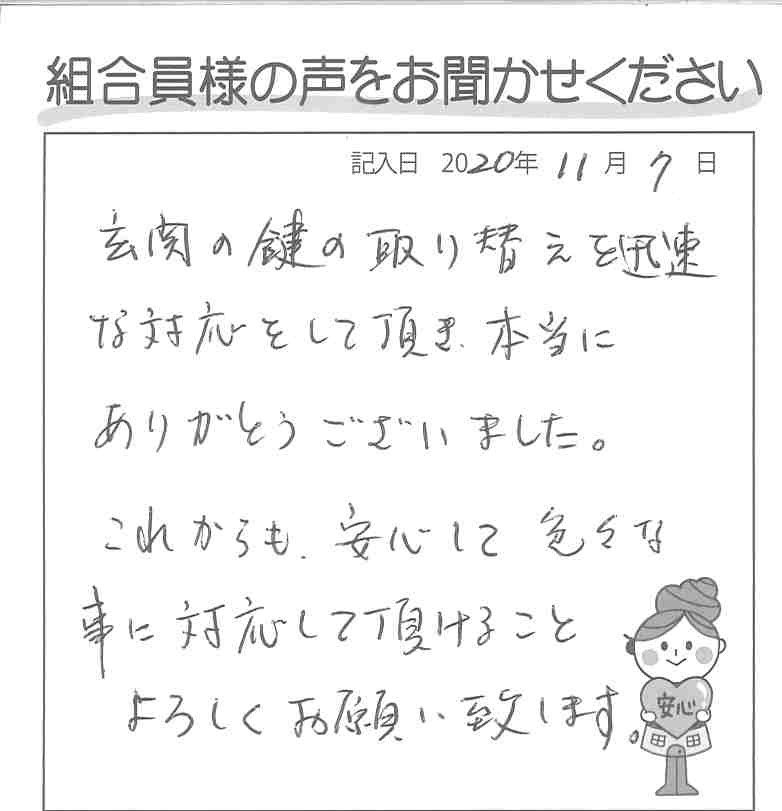 組合員様の声をお聞かせください
記入日 2020年 11月 7日
玄関の鍵の取り替えを迅速
な対応をして頂き、本当に
ありがとうございました。
これからも、安心して色々な
事に対応して頂けること
よろしくお願い致します。
安心